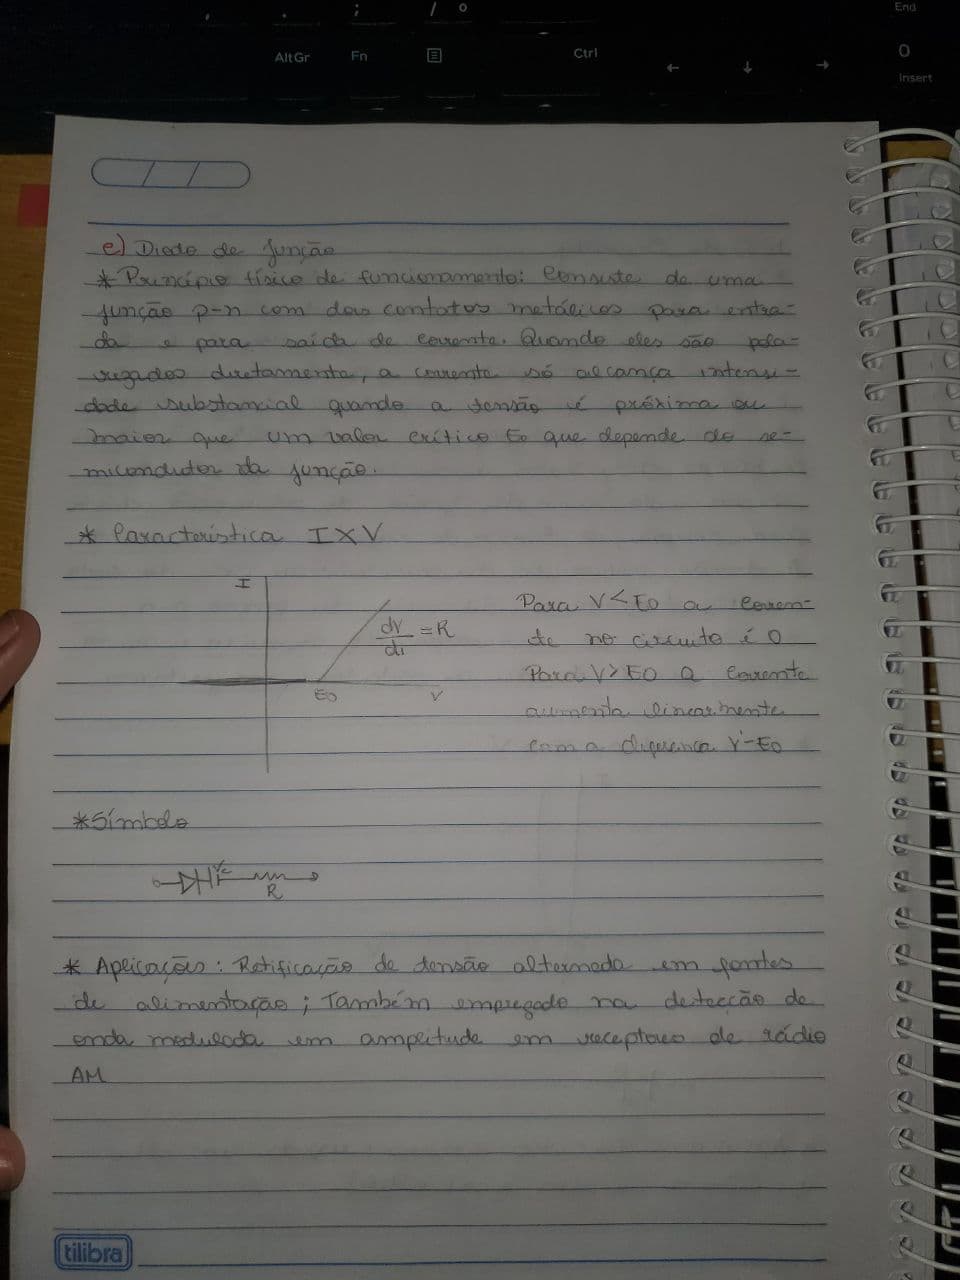 ; / o End
AltGr Fn Ctrl 0
← ↓ → Insert
e) Diodo de junção
* Princípio físico de funcionamento: Consiste de uma
junção p-n com dois contatos metálicos para entra-
da e para saída de corrente. Quando eles são pola-
rizados diretamente, a corrente só alcança intensi-
dade substancial quando a tensão é próxima ou
maior que um valor crítico E0 que depende do se-
micondutor da junção.
* Característica I X V
I
dV/di = R
E0 V
Para V < E0 a corren-
te no circuito é 0
Para V > E0 a corrente
aumenta linearmente
com a diferença V-E0
* Símbolo
R
* Aplicações: Retificação de tensão alternada em fontes
de alimentação; Também empregado na detecção de
onda modulada em amplitude em receptores de rádio
AM
tilibra